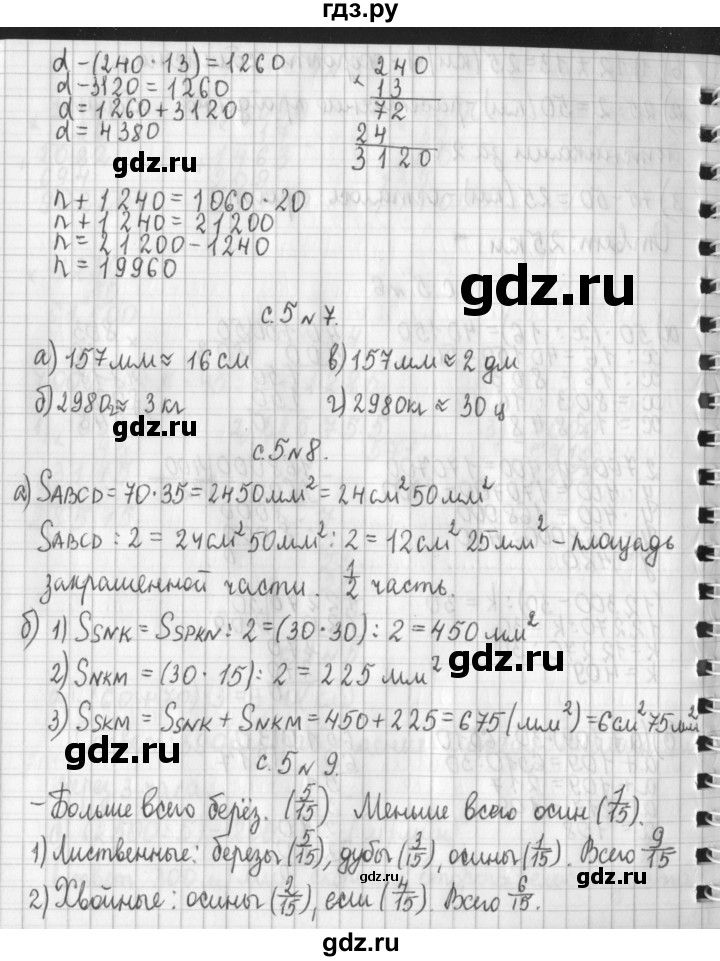 гдз.ру
d-(240·13)=1260
d-3120=1260
d=1260+3120
d=4380
240
× 13
72
24
3120
gdz.ru
n+1240=1060·20
n+1240=21200
n=21200-1240
n=19960
gdz.ru
с.5 №7.
а) 157мм≈ 16см
в) 157мм≈2 дм
б) 2980г≈ 3кг
г) 2980кг≈30ц
gdz.ru
с.5 №8.
а) SABCD=70·35=2450мм²=24см²50мм²
SABCD:2=24см²50мм²:2=12см²25мм²-площадь
закрашенной части. 1/2 часть.
б) 1) SSNK=SSPKN:2=(30·30):2=450мм²
gdz.ru
2) SNKM=(30·15):2=225мм²
3) SSKM=SSNK+SNKM=450+225=675(мм²)=6см²75мм²
gdz.ru
с.5 №9.
-Больше всего берёз. (5/15) Меньше всего осин (1/15).
1) Лиственные: березы (5/15), дубы (3/15), осины (1/15). Всего 9/15
gdz.ru
2) Хвойные: осины (2/15), ели (4/15). Всего 6/15.
gdz.ru
gdz.ru